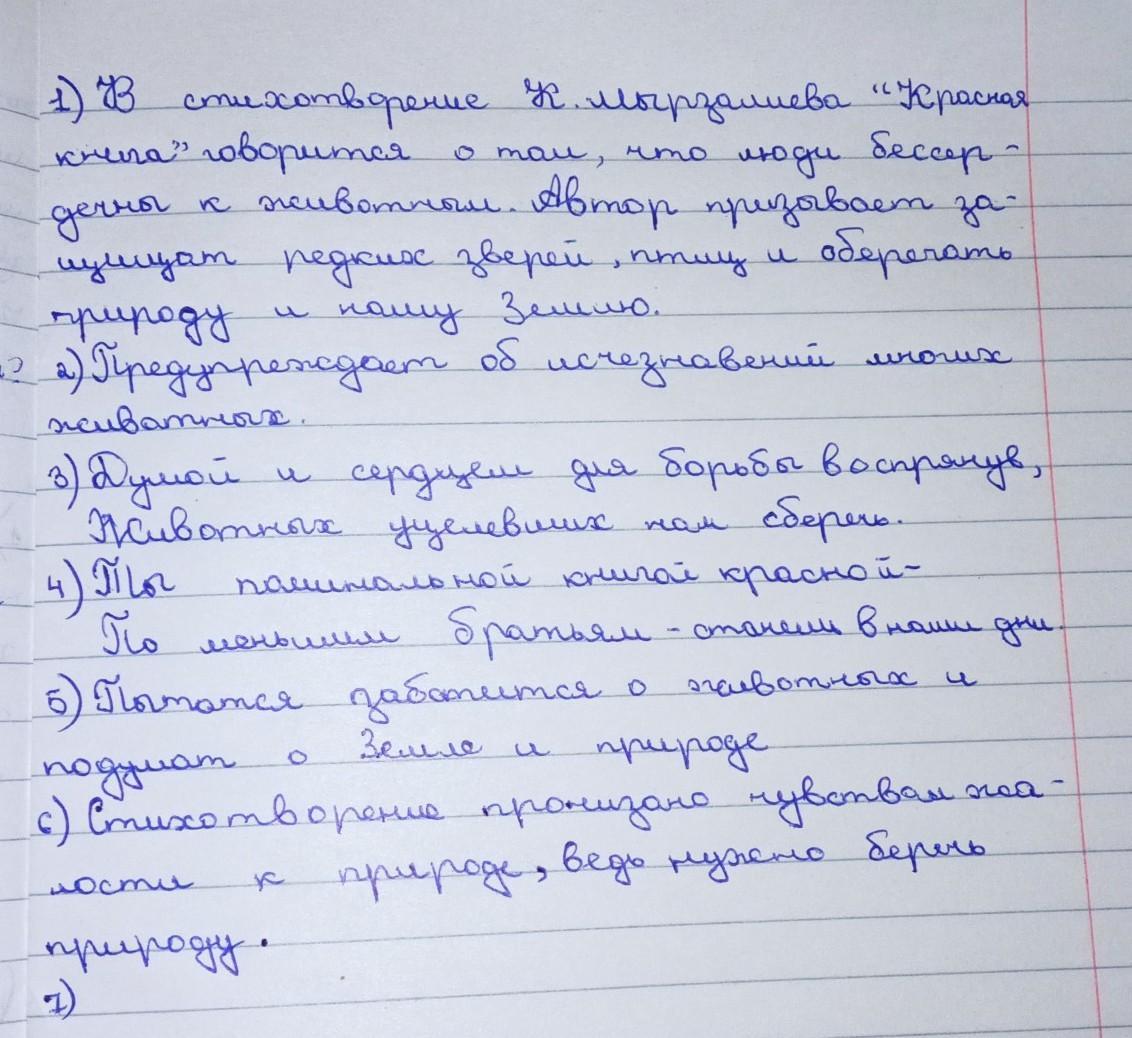 1) В стихотворение К. мырзалиева “Красная
книга” говорится о том, что люди бессер-
дечны к животным. Автор призывает за-
щищат редких зверей, птиц и оберегать
природу и нашу Землю.
2) Предупреждает об исчезнавений многих
живатных.
3) Думой и сердцем для борьбы воспрянув,
Животных уцелевших нам сберечь.
4) Ты паминальной книгой красной-
По меньшим братьям - станешь в наши дни.
5) Пытатся заботится о животных и
подумат о Земле и природе
6) Стихотворение пронизано чувствам жа-
лости к природе, ведь нужно беречь
природу.
7)